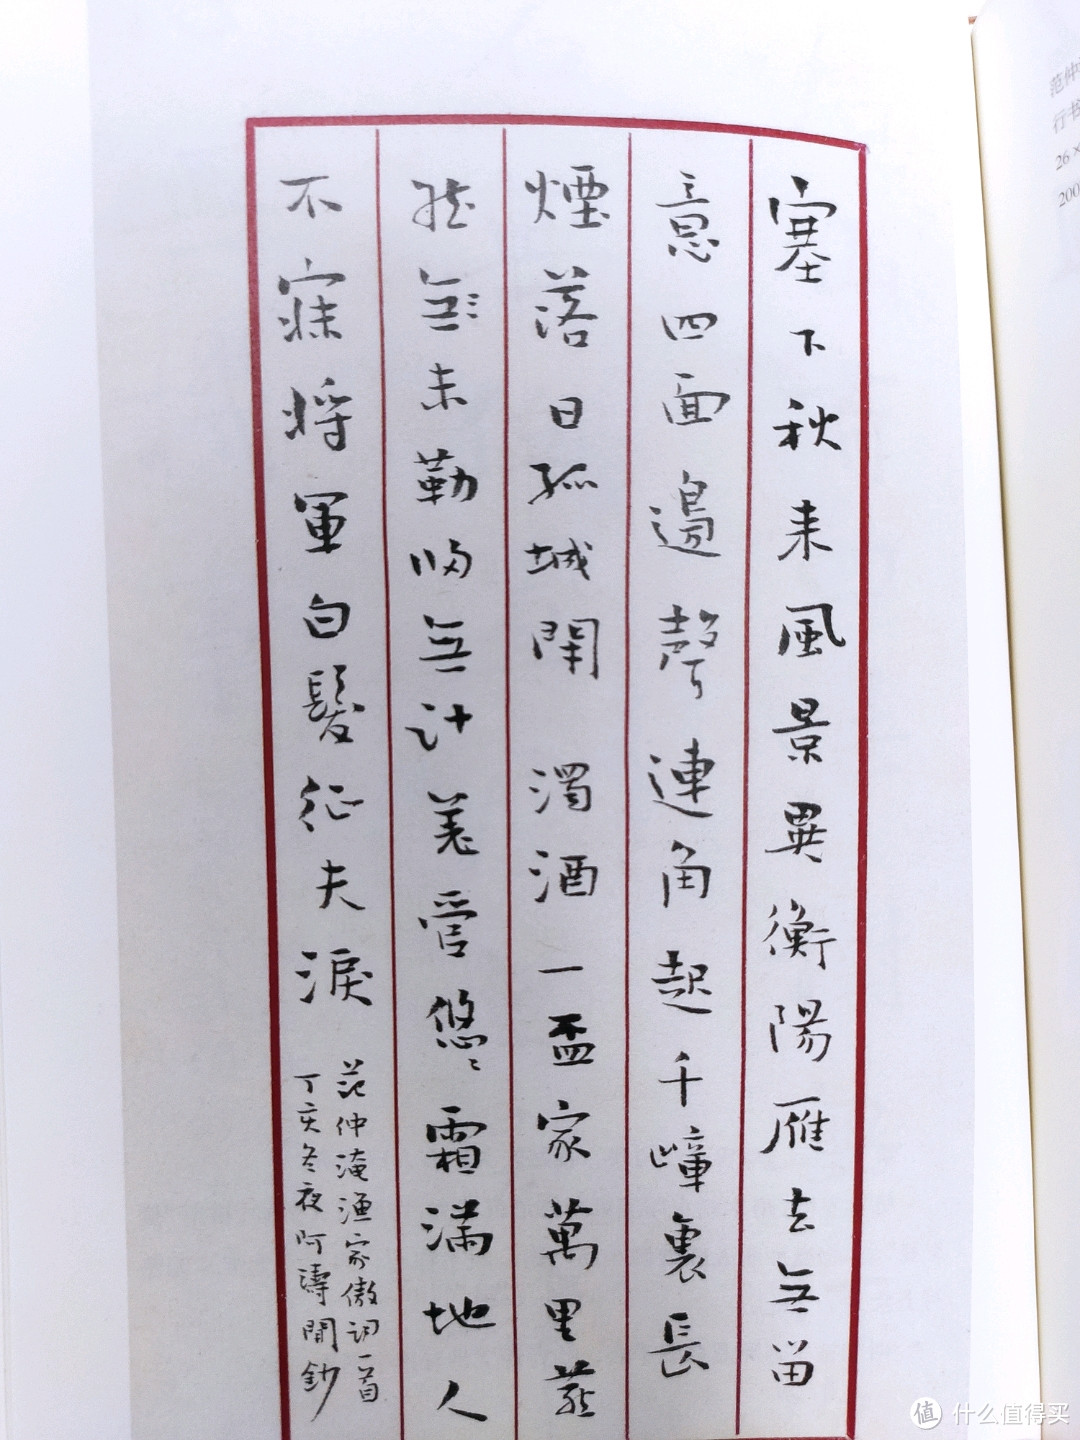 塞下秋来風景異衡陽雁去無留
意四面邊聲連角起千嶂裏長
煙落日孤城閉 濁酒一盃家萬里燕
然無未勒歸無計羌管悠〻霜滿地人
不寐將軍白髮征夫淚
范仲淹漁家傲詞一首
丁亥冬夜阿濤閒鈔
范仲
行书
26 ×
200
值 什么值得买